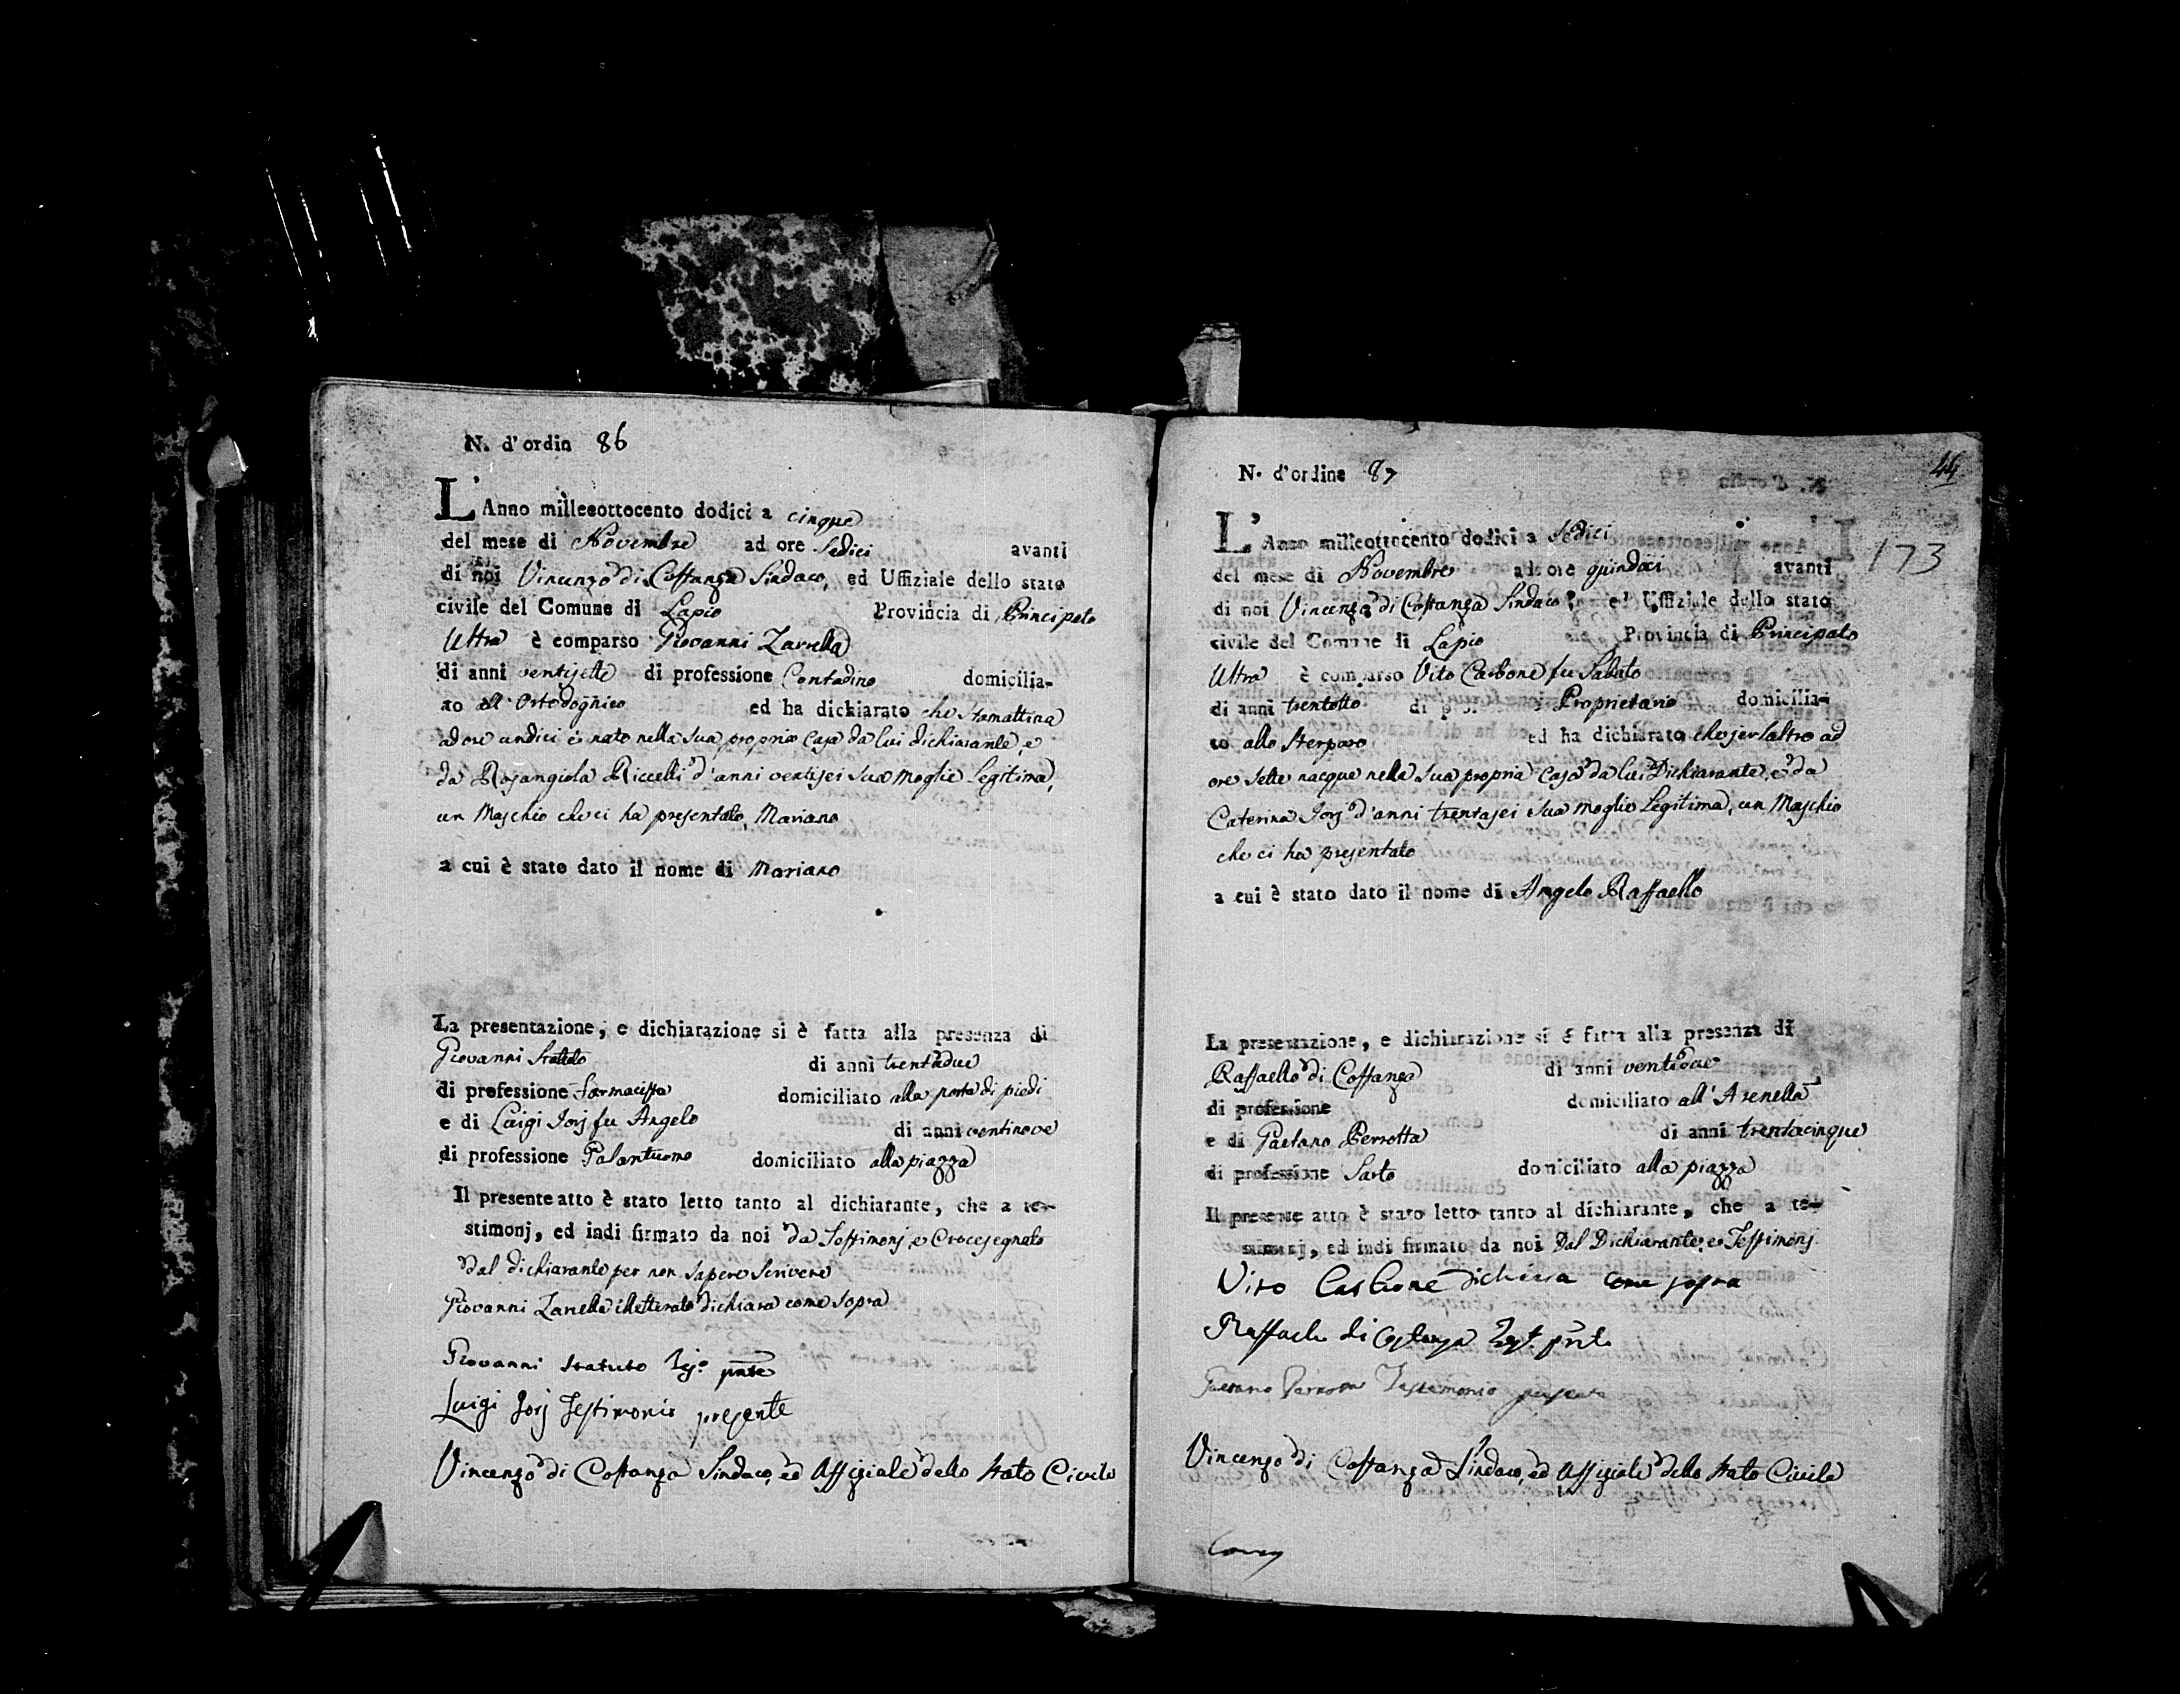 N. d'ordin 86
L'Anno milleottocento dodici a cinque
del mese di Novembre ad ore Sedici avanti
di noi Vincenzo di Costanza Sindaco, ed Uffiziale dello stato
civile del Comune di Lapio Provincia di Principato
Ultra è comparso Giovanni Zarrella
di anni ventisette di professione Contadino domicilia-
to all' Ortodognico ed ha dichiarato che Stamattina
ad ore undici è nato nella sua propria casa da lui dichiarante, e
da Rosangiola Riccelli d'anni ventisei sua moglie legitima,
un Maschio che ci ha presentato, Mariano
a cui è stato dato il nome di Mariano
La presentazione, e dichiarazione si è fatta alla presenza di
Giovanni Statuto di anni trentadue
di professione Farmacista domiciliato alla porta di piedi
e di Luigi Iorj fu Angelo di anni ventinove
di professione Galantuomo domiciliato alla piazza
Il presente atto è stato letto tanto al dichiarante, che a te-
stimonj, ed indi firmato da noi da Testimonj, e Crocesegnato
dal dichiarante per non sapere Scrivere
Giovanni Zarrella illetterato dichiara come sopra
Giovanni Statuto
Luigi Iorj Testimonio presente
Vincenzo di Costanza Sindaco, ed Uffiziale dello Stato Civile
44
N. d'ordine 87
173
L'Anno milleottocento dodici a Sedici
del mese di Novembre ad ore quindeci avanti
di noi Vincenzo di Costanza Sindaco, ed Uffiziale dello stato
civile del Comune di Lapio Provincia di Principato
Ultra è comparso Vito Carbone fu Sabato
di anni trentotto di Proprietario domicilia-
to allo Sterparo ed ha dichiarato che jer l'altro ad
ore sette nacque nella sua propria casa da lui Dichiarante, e da
Caterina Iorj d'anni trentasei sua moglie legitima, un Maschio
che ci ha presentato
a cui è stato dato il nome di Angelo Raffaello
La presentazione, e dichiarazione si è fatta alla presenza di
Raffaello di Costanzo di anni ventidue
di professione domiciliato all' Arenella
e di Gaetano Perrotta di anni trentacinque
di professione Sarto domiciliato alla piazza
Il presente atto è stato letto tanto al dichiarante, che a te-
stimonj, ed indi firmato da noi Dal Dichiarante, e Testimonj
Vito Carbone dichiara come sopra
Raffaele di Costanza
Gaetano Perrotta Testimonio presente
Vincenzo di Costanza Sindaco, ed Uffiziale dello Stato Civile